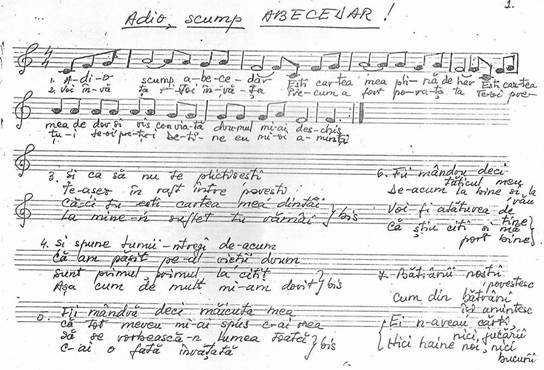 1.
Adio, scump ABECEDAR !
1. A-di-o scump a-be-ce-dar Ești cartea mea pli-nă de har Ești cartea
2. Voi în-vă ța Voi în-vă-ța Pre-cum a fost po-va-ța ta
mea de dor și vis mi-ai des-chis
3. Și ca să nu te plictisești
Te-așez în raft între povești
Căci tu ești cartea mea dintâi
La mine-n suflet tu rămâi } bis
4. Și spune lumii-ntregi de-acum
Că am pășit pe-al vieții drum
Sunt primul, primul la citit
Așa cum de mult mi-am dorit } bis
5. Fii mândră deci măicuța mea
Că tot mereu mi-ai spus c-ai vrea
Să se vorbească-n lumea toată
C-ai o fată învățată } bis
6. Fii mândru deci
tăticul meu
De-acum la bine și la
rău
Voi fi alături de
tine
Că știu citi
port bine
* Bătrânii noștri
povestesc
cum din bătrâni
își amintesc
Ei n-aveau cărți,
nici jucării
Nici haine noi, nici
bucurii